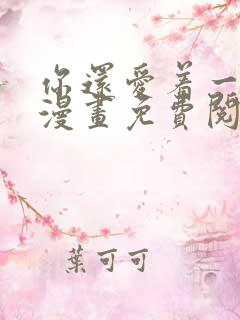 你還愛着一
漫畫免費閱
葉可可